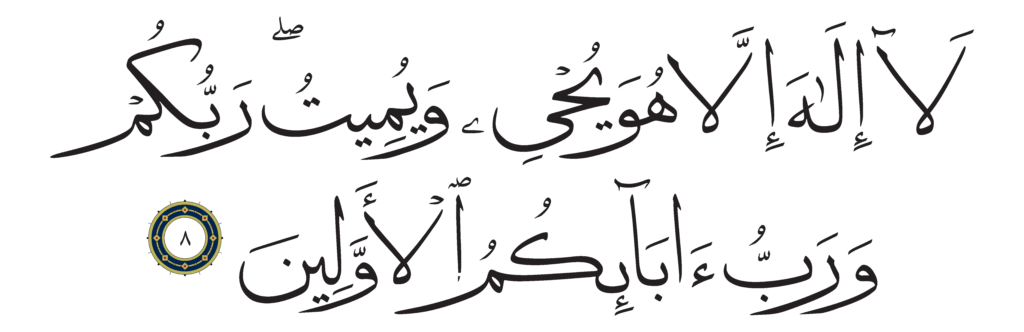 لَآ إِلَٰهَ إِلَّا هُوَ يُحْيِۦ وَيُمِيتُ ۖ رَبُّكُمْ
وَرَبُّ ءَابَآئِكُمُ ٱلْأَوَّلِينَ ٨